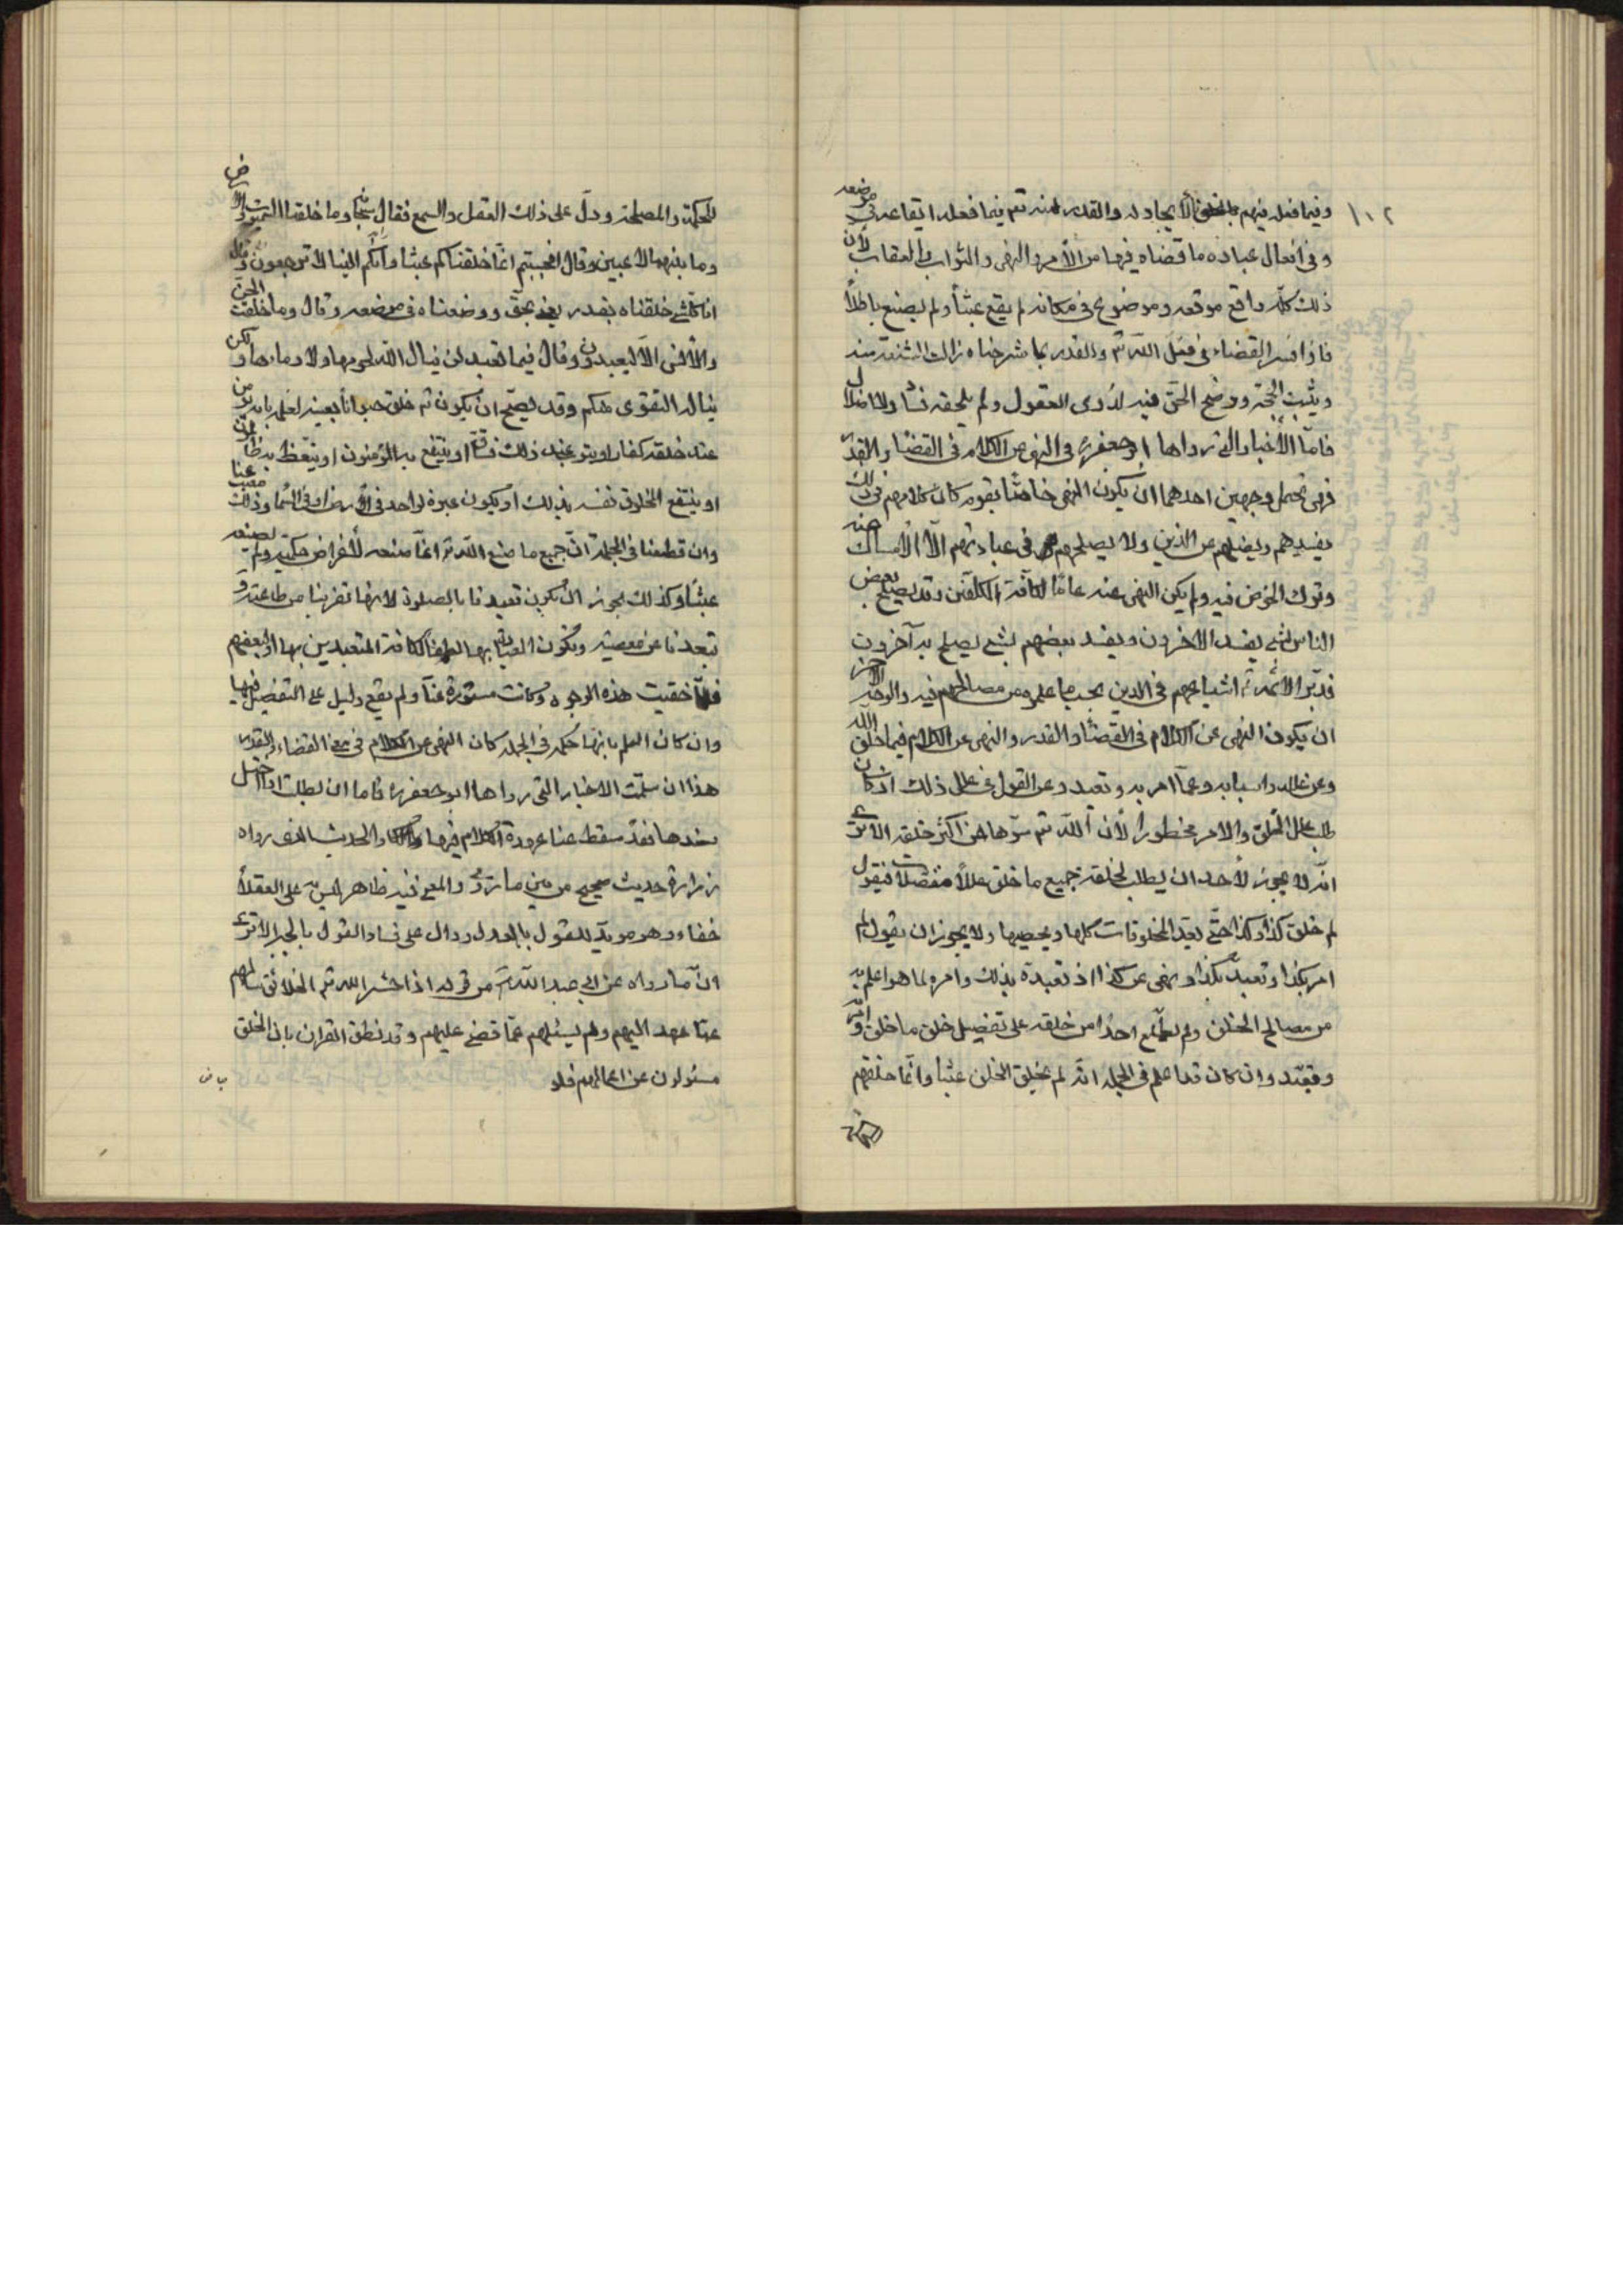 ١٠٢
وفيما فعله فيهم بالخلق بالايجاد له والقدر منه تعم فيما فعله ايقاعه في موضعه
وفى افعال عباده ما قضاه فيها من الأمر والنهى والثواب والعقاب لأن
ذلك كله واقع موقعه وموضوع فى مكانه لم يقع عبثاً ولم يصنع باطلاً
فاذا فسر القضاء فى فعل الله تم والقدر بما شرحناه زالت الشنعة منه
ويثبت الحجة ووضح الحق فيه لذوى العقول ولم يلحقه فساد ولا اخلال
فامّا الأخبار التى رواها ابو جعفره فى النهى عن الكلام فى القضاء والقدر
فهى تحتمل وجهين احدهما ان يكون النهى خاصّا بقوم كان كلامهم فى ذلك
يفسدهم ويضلهم عن الدين ولا يصلحهم فى عبادتهم الّا الأمساك عنه
وترك الخوض فيه ولم يكن النهى عنه عامّا لكافّة المكلّفين وقد يصلح بعض
الناس بشئ يفسد به الاخرون ويفسد بعضهم بشئ يصلح به آخرون
فدبّر الائمّة ۴ اشياعهم فى الدين بحسب ما علموه من مصالحهم فيه والوجه الآخر
ان يكون النهى عن الكلام فى القضاء والقدر والنهى عن الكلام فيما خلق الله
وعن علله واسبابه وعمّا امر به وتعبد وعن القول فى علل ذلك اذ كان
طلب علل الخلق والامر محظوراً لأن الله تم سترها من اكثر خلقه الا ترى
انّه لا يجوز لأحد ان يطلب لخلقه جميع ما خلق عللاً مفصّلات فيقول
لم خلق كذا وكذا حتّى يعد المخلوقات كلها ويحصيها ولا يجوز ان يقول لم
امر بكذا وتعبد بكذا ونهى عن كذا اذ تعبده بذلك وامره لما هو اعلم به
من مصالح الخلق ولم يطّلع احداً من خلقه على تفصيل خلق ما خلق وامر به
وتعبّد وان كان قد اعلم فى الجملة انّه لم يخلق الخلق عبثا وانّما خلقهم
للحكمة والمصلحة ودلّ على ذلك العقل والسمع فقال سبحا وما خلقنا السموات والارض
وما بينهما لاعبين وقال افحسبتم انّما خلقناكم عبثاً وانّكم الينا لا ترجعون وقال
انا كلّ شئ خلقناه بقدر يعنى بحقّ ووضعناه فى موضعه وقال وما خلقت الجن
والأنس الّا ليعبدون وقال فيما تعبد لن ينال الله لحومها ولا دماءها ولكن
يناله التقوى منكم وقد يصحّ ان يكون تم خلق حيواناً بعينه لعلمه بانه يؤمن
عند خلقه كفار او يتوب عند ذلك فساق او ينتفع به المؤمنون او يتّعظ به ظالمون
او ينتفع المخلوق نفسه بذلك او يكون عبرة لواحد فى الارض او فى السما وذلك مغيب عنا
وان قطعنا فى الجملة انّ جميع ما صنع الله تم انّما صنعه لأغراض حكمية ولم يصنعه
عبثاً وكذلك يجوز ان يكون تعبدنا بالصلوة لانها تقربنا من طاعته و
تبعدنا عن معصيته وتكون العبادة بها لطفاً لكافة المتعبدين بها او لبعضهم
فلمّا خفيت هذه الوجوه وكانت مستورة عنّا ولم يقع دليل على التفصيل فيها
وان كان العلم بانها حكمة فى الجملة كان النهى عن الكلام فى معنى القضاء والقدر
هذا ان سلمت الاخبار التى رواها ابو جعفره فاما ان بطلت او اختل
سندها فقد سقط عنا عهدة الكلام فيها والحديث الذى رواه
زرارة حديث صحيح من بين ما روى والمعنى فيه ظاهر ليس به على العقلاء
خفاء وهو مويّد للقول بالعدل ودال على فساد القول بالجبر الا ترى
انّ ما رواه عن ابى عبد الله ۴ من قوله اذا حشر الله تم الخلائق سالهم
عمّا عهد اليهم ولم يسئلهم عمّا قضى عليهم وقد نطق القرآن بان الخلق
مسئولون عن اعمالهم فلو